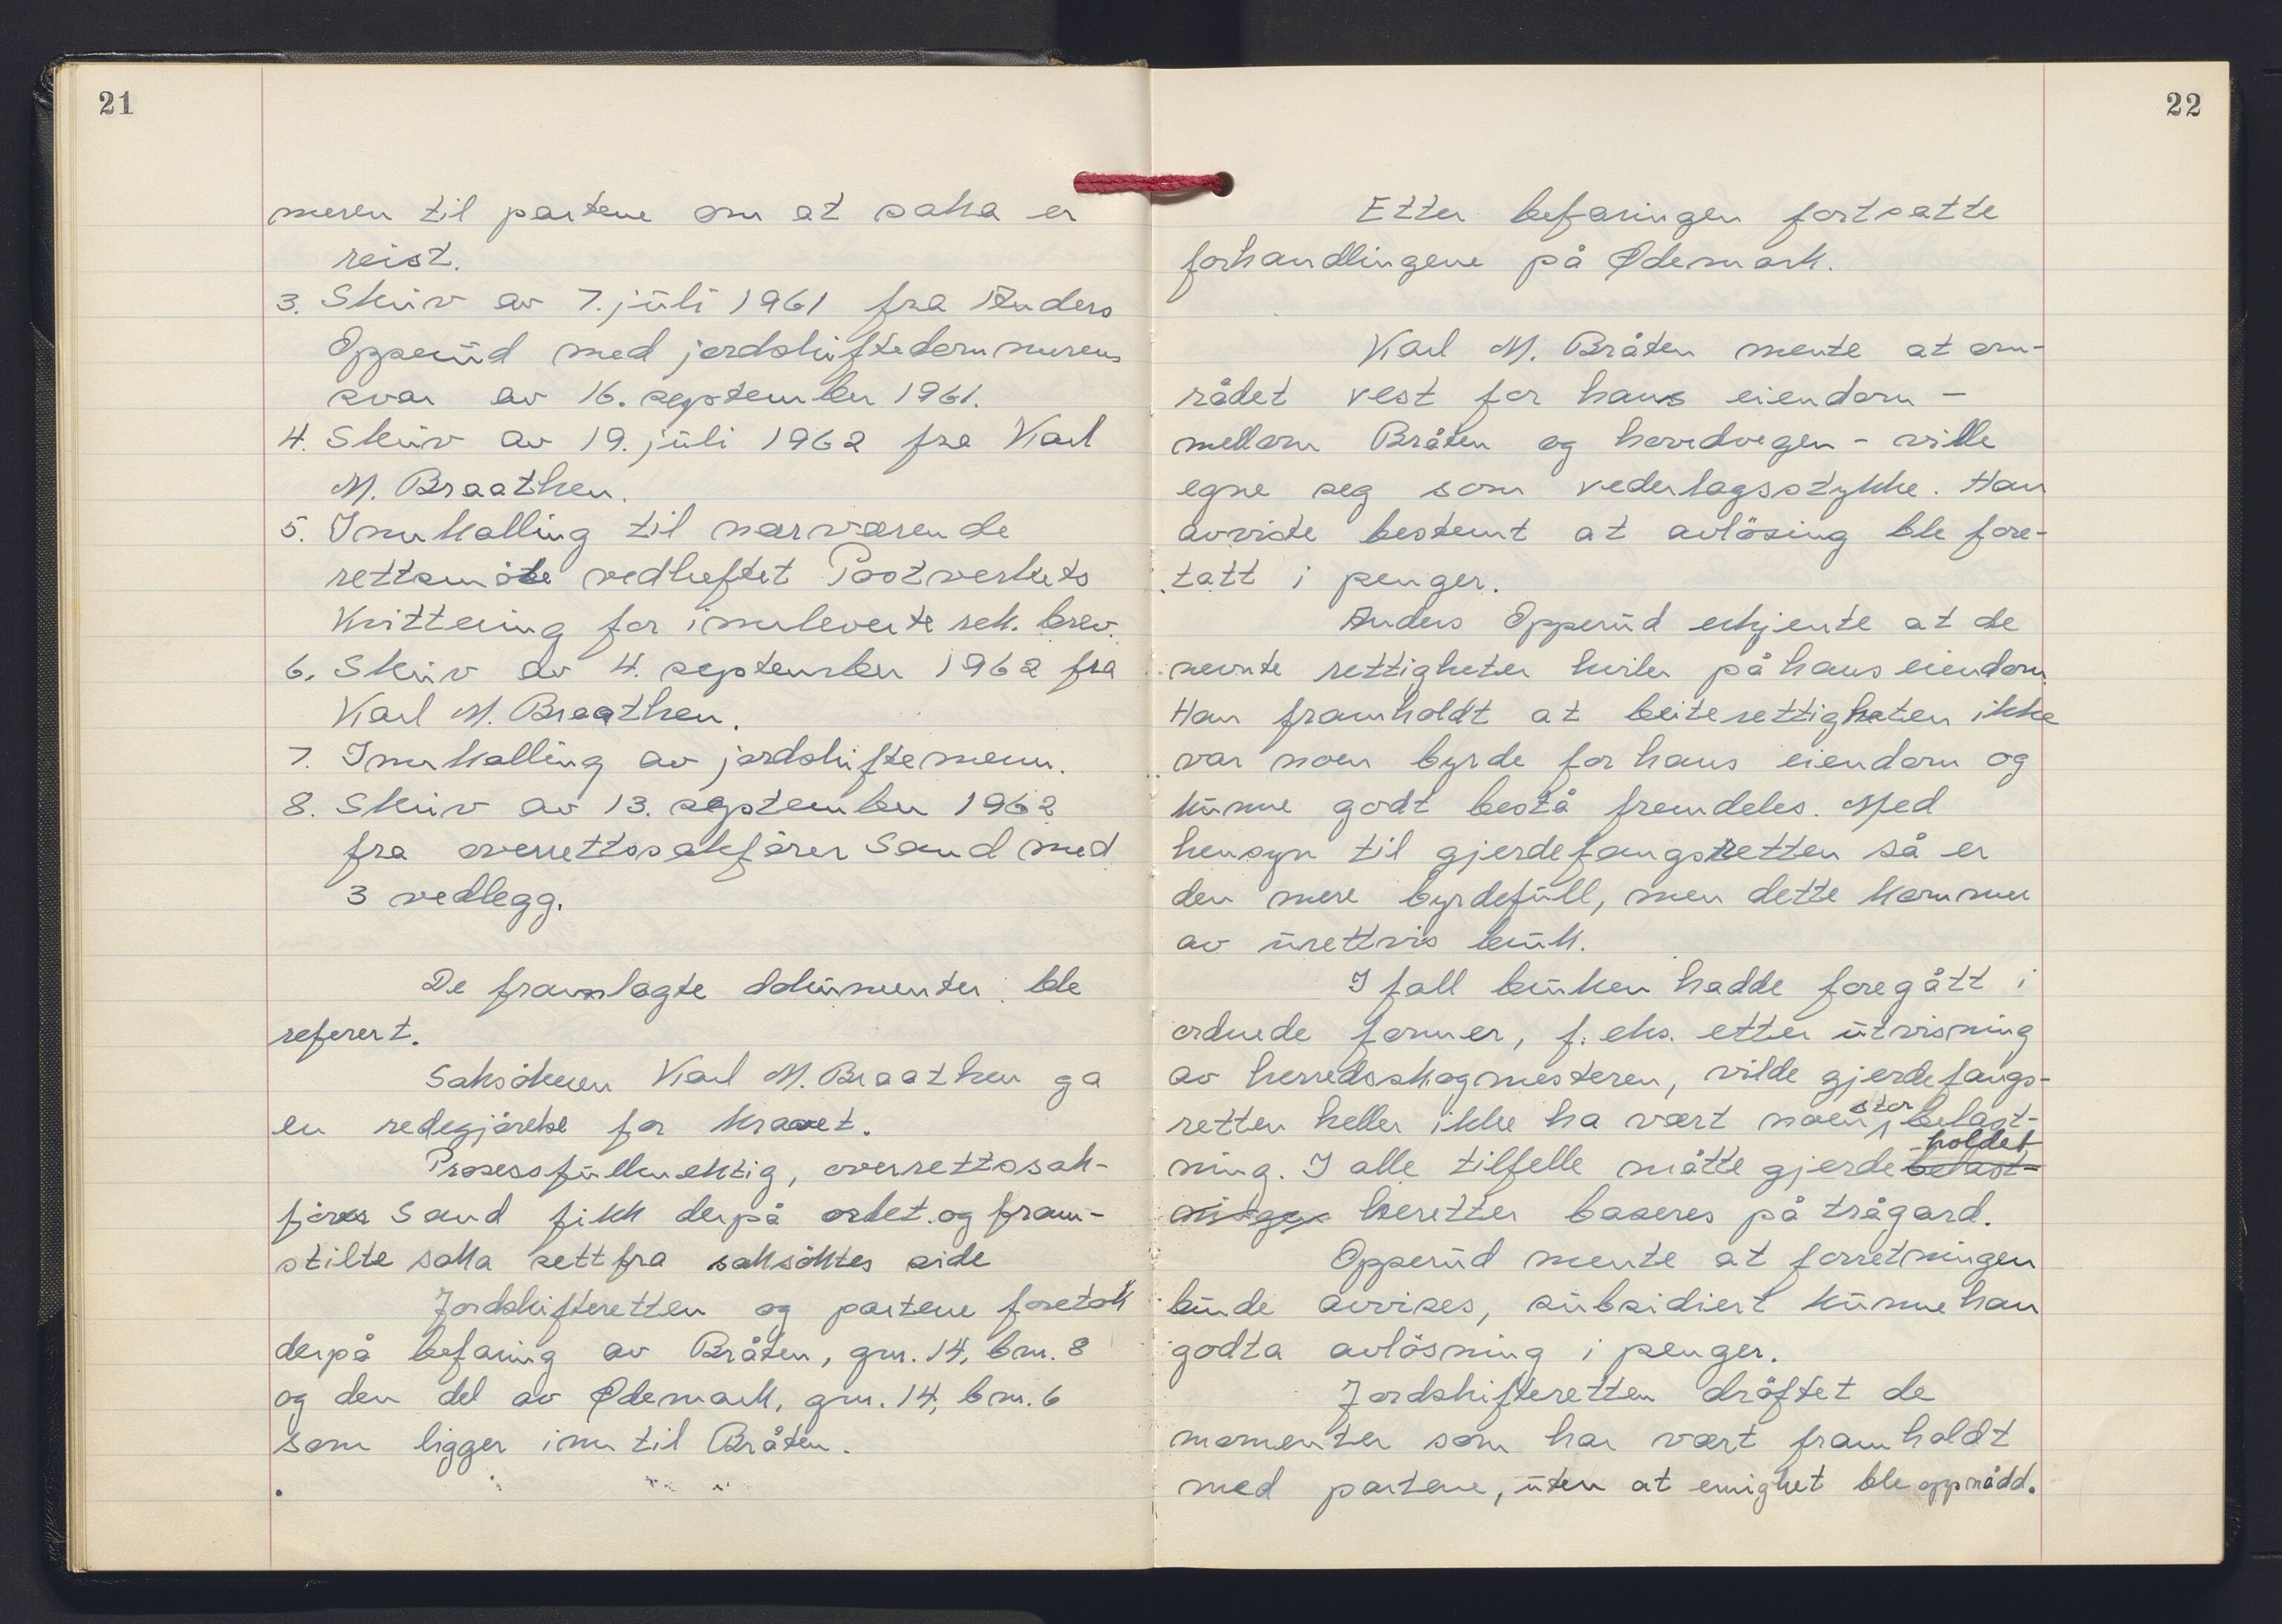 21
meren til partene om at saka er
reist.
3. Skriv av 7. juli 1961 fra Anders
Opperud med jordskiftedommerens
svar av 16. september 1961.
4. Skriv av 19. juli 1962 fra Karl
M. Braathen.
5. Innkalling til nærværende
rettsmöte vedheftet Postverkets
Kvittering for innleverte rek. brev.
6. Skriv av 4. september 1962 fra
Karl M. Braathen.
7. Innkalling av jordskiftemenn.
8. Skriv av 13. september 1962
fra overrettssakförer Sand med
3 vedlegg.
De framlagte dokumenter ble
referert.
Saksökeren Karl M. Braathen ga
en redegjörelse for kravet.
Prosessfullmektig, overrettssak-
förer Sand fikk derpå ordet og fram-
stilte saka sett fra saksöktes side
Jordskifteretten og partene foretok
derpå befaring av Bråten, gnr. 14, bnr. 8
og den del av Ødemark, gnr. 14, bnr. 6
som ligger inn til Bråten.
22
Etter befaringen fortsatte
forhandlingene på Ødemark.
Karl M. Bråten mente at om-
rådet vest for hans eiendom -
mellom Bråten og hovedvegen - ville
egne seg som vederlagsstykke. Han
avviste bestemt at avlösing ble fore-
tatt i penger.
Anders Opperud erkjente at de
nevnte rettigheter hviler på hans eiendom.
Han framholdt at beiterettigheten ikke
var noen byrde for hans eiendom og
kunne godt bestå fremdeles. Med
hensyn til gjerdefangsretten så er
den mere byrdefull, men dette kommer
av urettvis bruk.
I fall bruken hadde foregått i
ordnede former, f. eks. etter utvisning
av herredsskogmesteren, vilde gjerdefangs-
retten heller ikke ha vært noen stor belast-
ning. I alle tilfelle måtte gjerde belast- holdet
ninger heretter baseres på trågard.
Opperud mente at forretningen
burde avvises, subsidiert kunne han
godta avlösning i penger.
Jordskifteretten dröftet de
momenter som har vært framholdt
med partene, uten at enighet ble oppnådd.